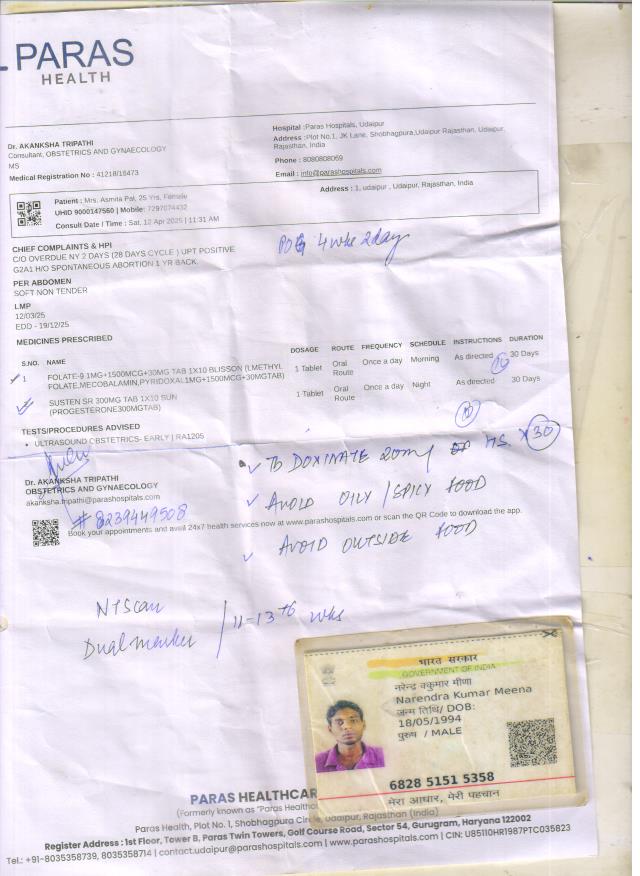 PARAS
HEALTH
Dr. AKANKSHA TRIPATHI
Consultant, OBSTETRICS AND GYNAECOLOGY
MS
Medical Registration No : 41218/16473
Hospital :Paras Hospitals, Udaipur
Address :Plot No,1, JK Lane, Shobhagpura,Udaipur Rajasthan, Udaipur,
Rajasthan, India
Phone : 8080808069
Email : info@parashospitals.com
Patient : Mrs. Asmita Pal, 25 Yrs, Female
UHID 9000147560 | Mobile: 7297074432
Consult Date / Time : Sat, 12 Apr 2025 | 11:31 AM
Address : 1, udaipur , Udaipur, Rajasthan, India
CHIEF COMPLAINTS & HPI
C/O OVERDUE NY 2 DAYS (28 DAYS CYCLE ) UPT POSITIVE
G2A1 H/O SPONTANEOUS ABORTION 1 YR BACK
POG 4 wks 2day
PER ABDOMEN
SOFT NON TENDER
LMP
12/03/25
EDD - 19/12/25
MEDICINES PRESCRIBED
S.NO. NAME DOSAGE ROUTE FREQUENCY SCHEDULE INSTRUCTIONS DURATION
1 FOLATE-9 1MG+1500MCG+30MG TAB 1X10 BLISSON (LMETHYL FOLATE,MECOBALAMIN,PYRIDOXAL1MG+1500MCG+30MGTAB) 1 Tablet Oral Route Once a day Morning As directed 30 Days
SUSTEN SR 300MG TAB 1X10 SUN (PROGESTERONE300MGTAB) 1 Tablet Oral Route Once a day Night As directed 30 Days
10
10
TESTS/PROCEDURES ADVISED
• ULTRASOUND OBSTETRICS- EARLY | RA1205
Tb DOXINATE 20mg HS x 30
Dr. AKANKSHA TRIPATHI
OBSTETRICS AND GYNAECOLOGY
akanksha.tripathi@parashospitals.com
AVOID OILY / SPICY FOOD
# 8239449508
Book your appointments and avail 24x7 health services now at www.parashospitals.com or scan the QR Code to download the app.
AVOID OUTSIDE FOOD
NT Scan
Dual marker / 11-13+6 wks
भारत सरकार
GOVERNMENT OF INDIA
नरेन्द्र वकुमार मीणा
Narendra Kumar Meena
जन्म तिथि/ DOB:
18/05/1994
पुरुष / MALE
6828 5151 5358
मेरा आधार, मेरी पहचान
PARAS HEALTHCAR
(Formerly known as "Paras Healthc
Paras Health, Plot No. 1, Shobhagpura Circle, Udaipur, Rajasthan (India)
Register Address : 1st Floor, Tower B, Paras Twin Towers, Golf Course Road, Sector 54, Gurugram, Haryana 122002
Tel.: +91-8035358739, 8035358714 | contact.udaipur@parashospitals.com | www.parashospitals.com | CIN: U85110HR1987PTC035823